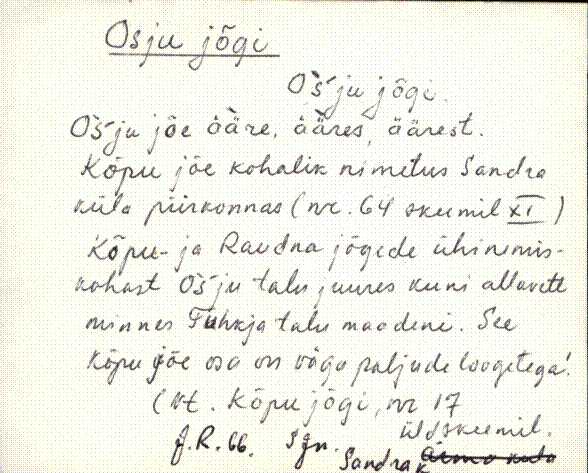 Osju jõgi
Oš̀ju jõgi.
Oš̀ju jõe ääre, ääres, äärest.
Kõpu jõe kohalik nimetus Sandra
küla piirkonnas (nr. 64 skeemil XI)
Kõpu- ja Raudna jõgede ühinemis-
kohast Oš̀ju talu juures kuni allavett
minnes Tuhkja talu maadeni. See
Kõpu jõe osa on väga paljude loogetega!
(vt. Kõpu jõgi, nr 17
üldskeemil.
J.R. 66. Sjn. Sandra k